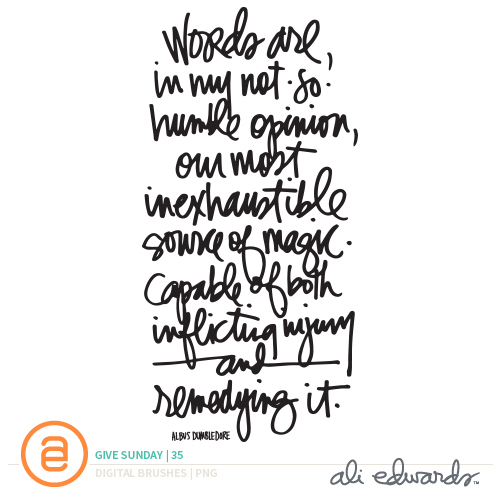 words are,
in my not·so·
humble opinion,
our most
inexhaustible
source of magic.
Capable of both
inflicting injury
and
remedying it.
ALBUS DUMBLEDORE
ae
GIVE SUNDAY | 35
DIGITAL BRUSHES | PNG
ali edwards™